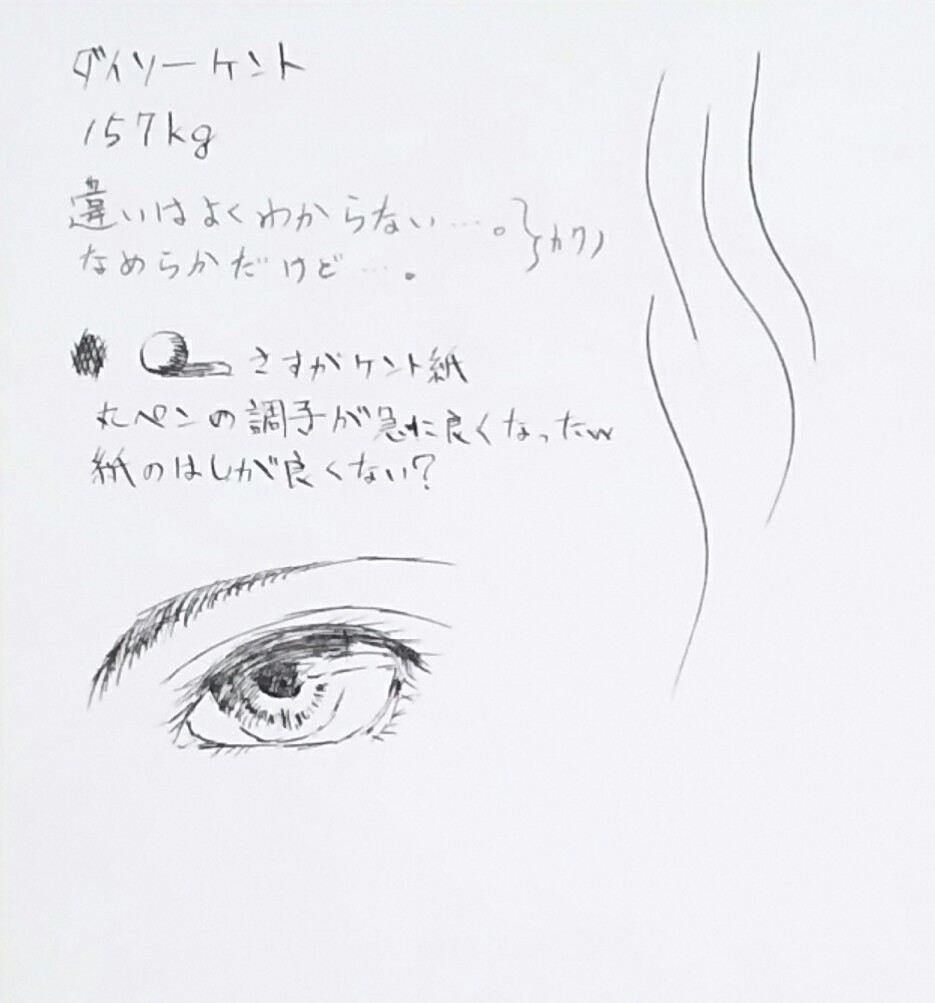 ダイソーケント
157kg
違いはよくわからない…。}カクノ
なめらかだけど…。
さすがケント紙
丸ペンの調子が急に良くなったw
紙のはしが良くない?